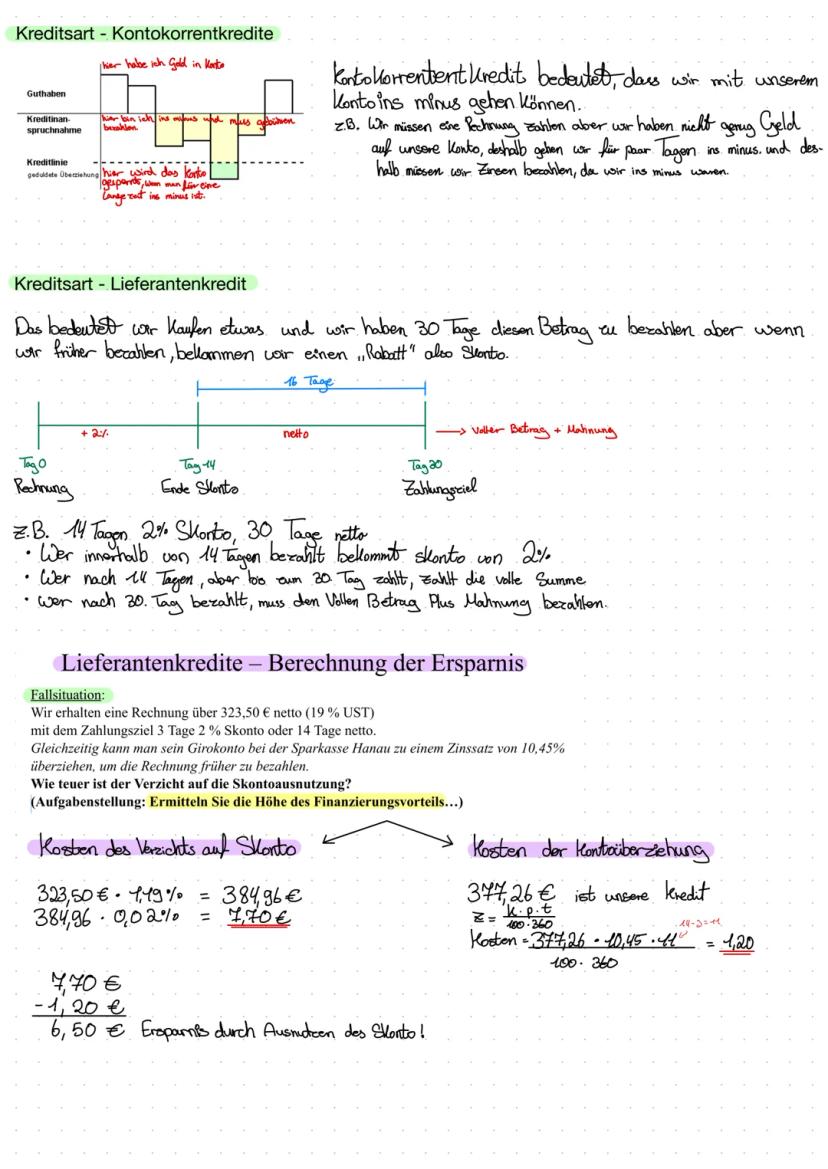 Kreditsart - Kontokorrentkredite
hier habe ich Geld in Konto
Guthaben
Kreditinan-
spruchnahme
hier bin ich ins minus und muss gebühren
bezahlen.
Kreditlinie
geduldete Überziehung
hier wird das Konto
gesperrt, wenn man für eine
lange zeit ins minus ist.
Kontokorrentient Kredit bedeutet, dass wir mit unserem
Konto ins minus gehen können.
z.B. Wir müssen eine Rechnung zahlen aber wir haben nicht genug Geld
auf unsere Konto, deshalb gehen wir für paar Tagen ins minus. und des-
halb müssen wir Zinsen bezahlen, da wir ins minus waren.
Kreditsart - Lieferantenkredit
Das bedeutet wir kaufen etwas und wir haben 30 Tage diesen Betrag zu bezahlen aber wenn
wir früher bezahlen, bekommen wir einen „Rabatt" also Skonto.
16 Tage
+ 2%
netto
Voller Betrag + Mahnung
Tag 0
Tag 14
Tag 30
Rechnung
Ende Skonto
Zahlungsziel
z.B. 14 Tagen 2% Skonto, 30 Tage netto
• Wer innerhalb von 14 Tagen bezahlt bekommt skonto von 2%
• Wer nach 14 Tagen, aber bis zum 30. Tag zahlt, zahlt die volle Summe
• wer nach 30. Tag bezahlt, muss den Vollen Betrag Plus Mahnung bezahlen.
Lieferantenkredite – Berechnung der Ersparnis
Fallsituation:
Wir erhalten eine Rechnung über 323,50 € netto (19 % UST)
mit dem Zahlungsziel 3 Tage 2 % Skonto oder 14 Tage netto.
Gleichzeitig kann man sein Girokonto bei der Sparkasse Hanau zu einem Zinssatz von 10,45%
überziehen, um die Rechnung früher zu bezahlen.
Wie teuer ist der Verzicht auf die Skontoausnutzung?
(Aufgabenstellung: Ermitteln Sie die Höhe des Finanzierungsvorteils…)
Kosten des Verzichts auf Skonto
323,50 € · 1,19% = 384,96 €
384,96 · 0,02% = 7,70 €
Kosten der Kontoüberziehung
377,26 € ist unsere Kredit
z = k.p.t
100·360
14-3=11
Kosten = 377,26 · 10,45 · 11 = 1,20
100 · 360
7,70 €
- 1,20 €
6,50 € Ersparnis durch Ausnutzen des Skonto!